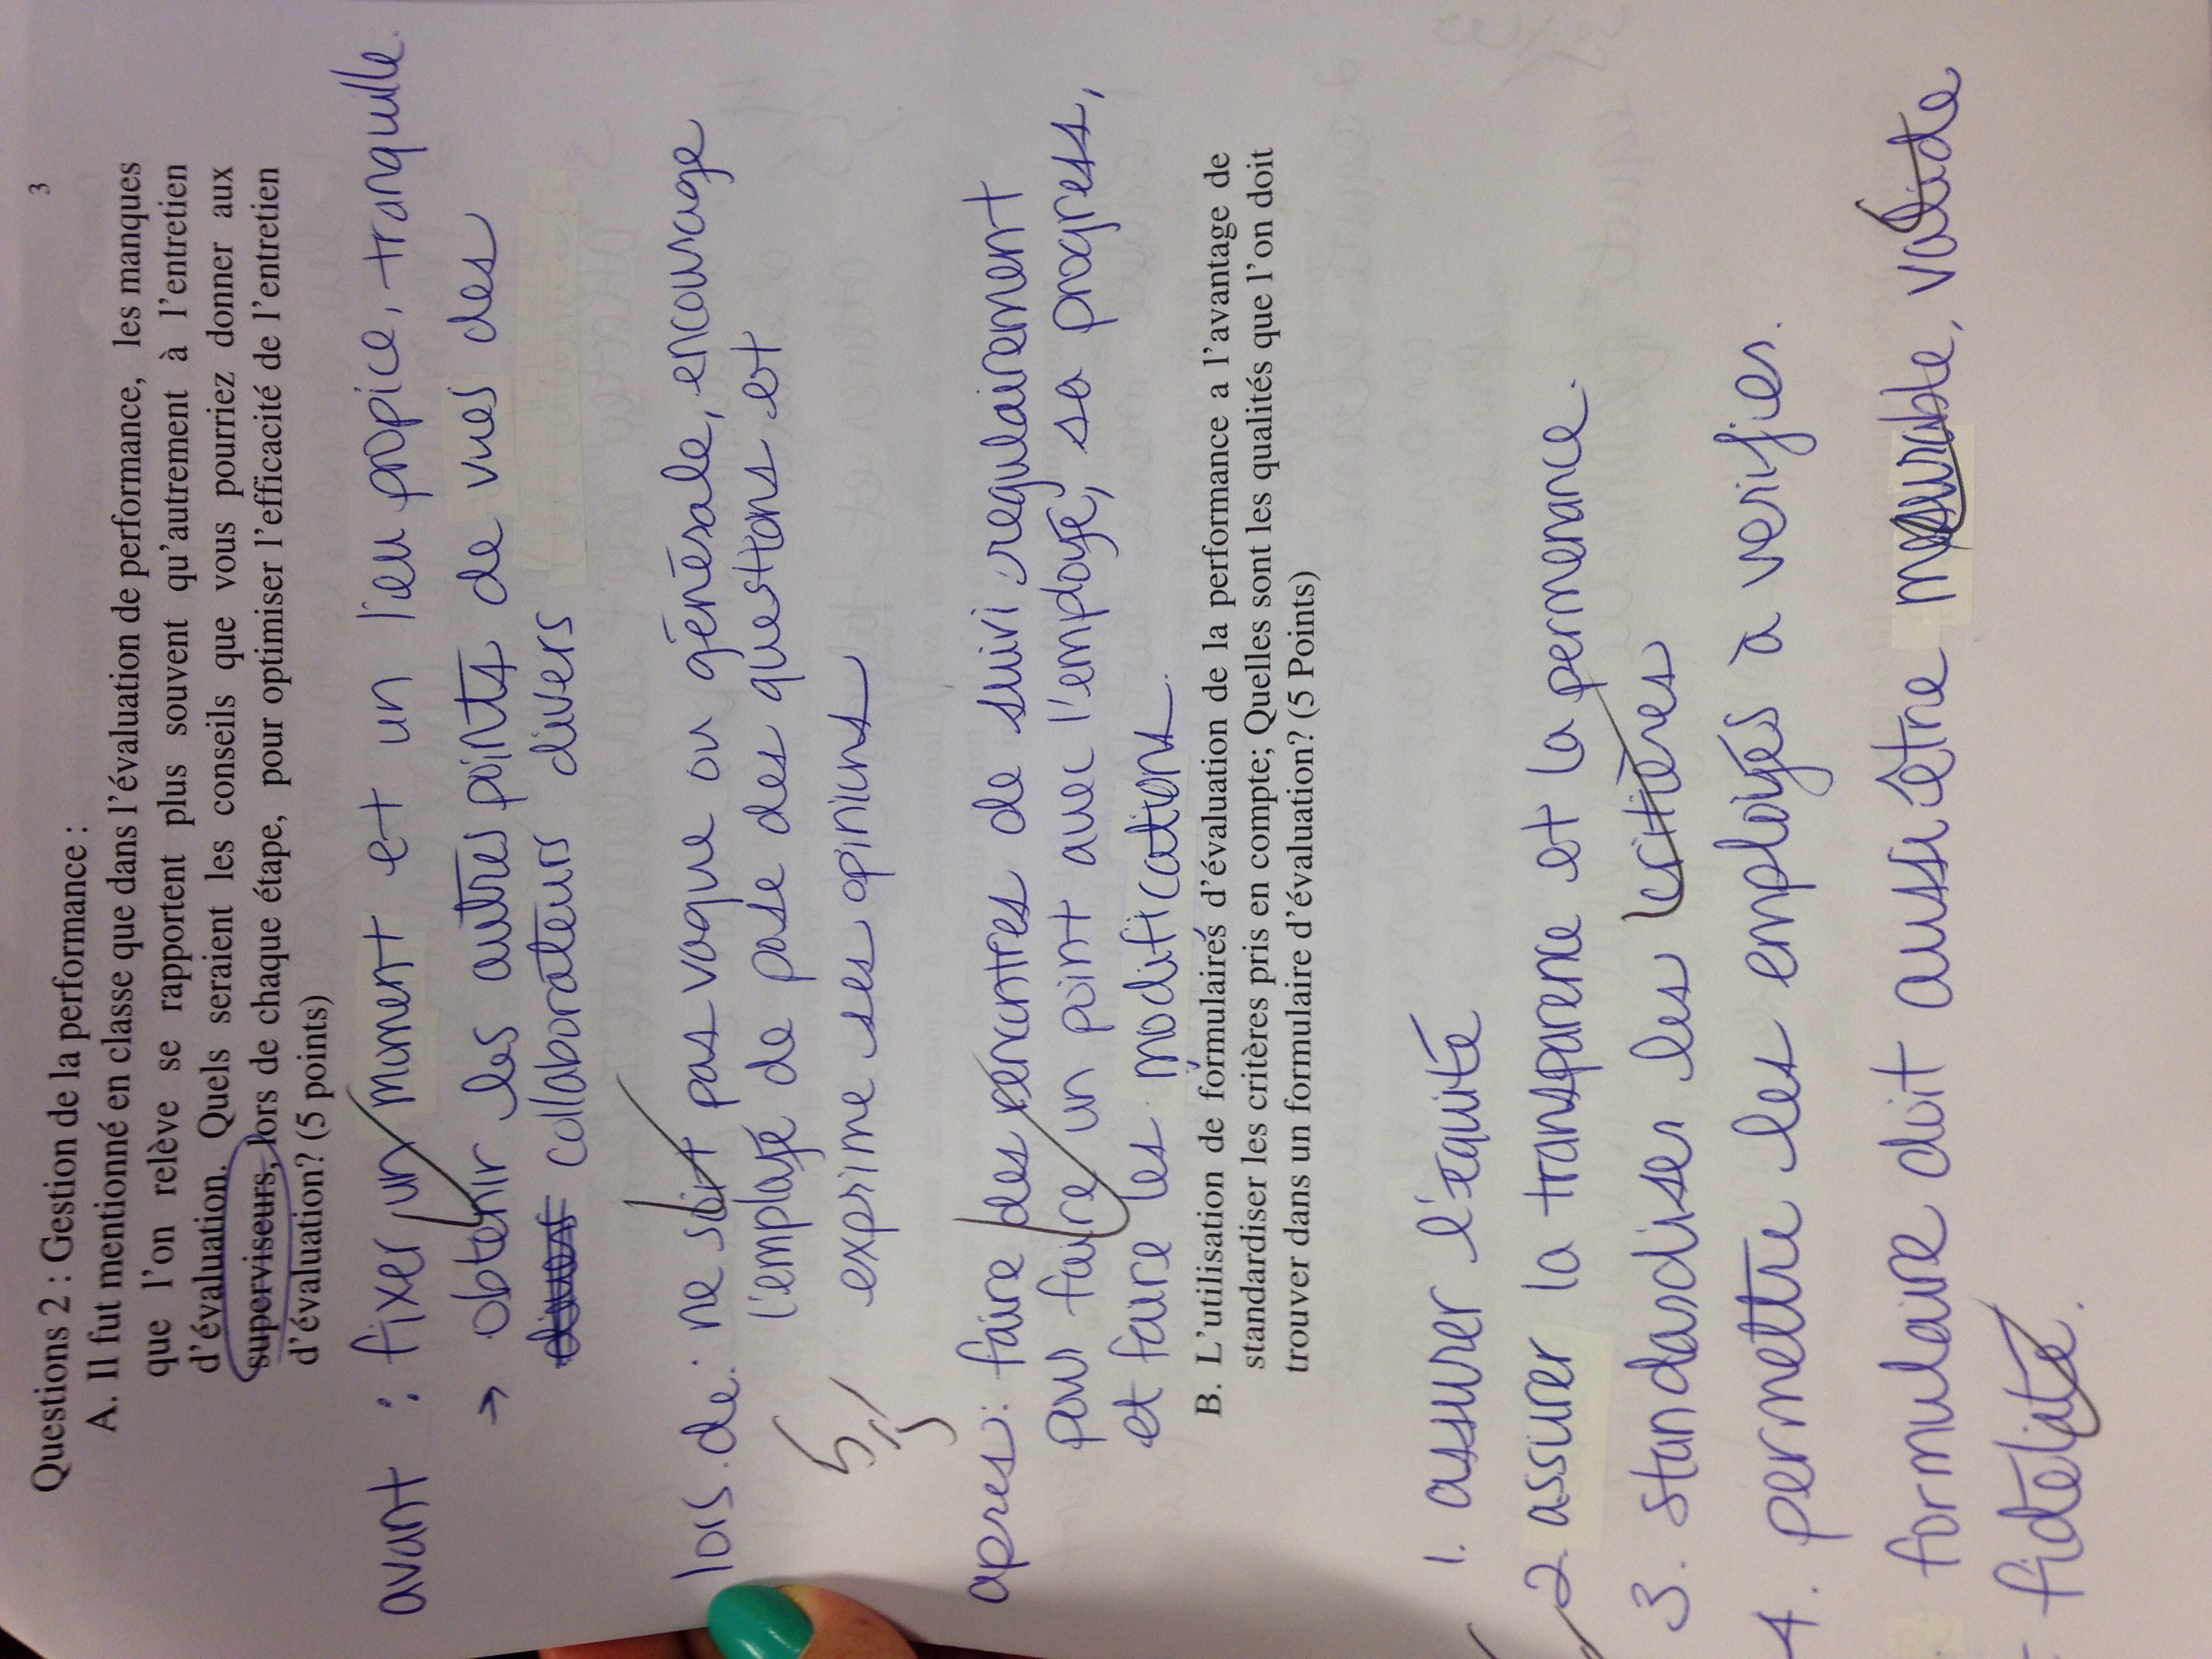 3
Questions 2 : Gestion de la performance :
A. Il fut mentionné en classe que dans l'évaluation de performance, les manques
que l'on relève se rapportent plus souvent qu'autrement à l'entretien
d'évaluation. Quels seraient les conseils que vous pourriez donner aux
superviseurs, lors de chaque étape, pour optimiser l'efficacité de l'entretien
d'évaluation? (5 points)
avant : fixer un moment et un lieu propice, tranquille.
→ obtenir les autres points de vues des
collaborateurs divers
lors de: ne soit pas vague ou générale, encourage
l'employé de pose des questions et
exprime ses opinions
5/5
apres: faire des rencontres de suivi regulairement
pour faire un point avec l'employé, sa progress,
et faire les modifications.
B. L'utilisation de formulaires d'évaluation de la performance a l'avantage de
standardiser les critères pris en compte; Quelles sont les qualités que l'on doit
trouver dans un formulaire d'évaluation? (5 Points)
1. assurer l'équité
2. assurer la transparence et la permenance.
3. standardiser les critères
4. permettre les employés a verifier.
formulaire doit aussi être mesurable, valide
fidelité.